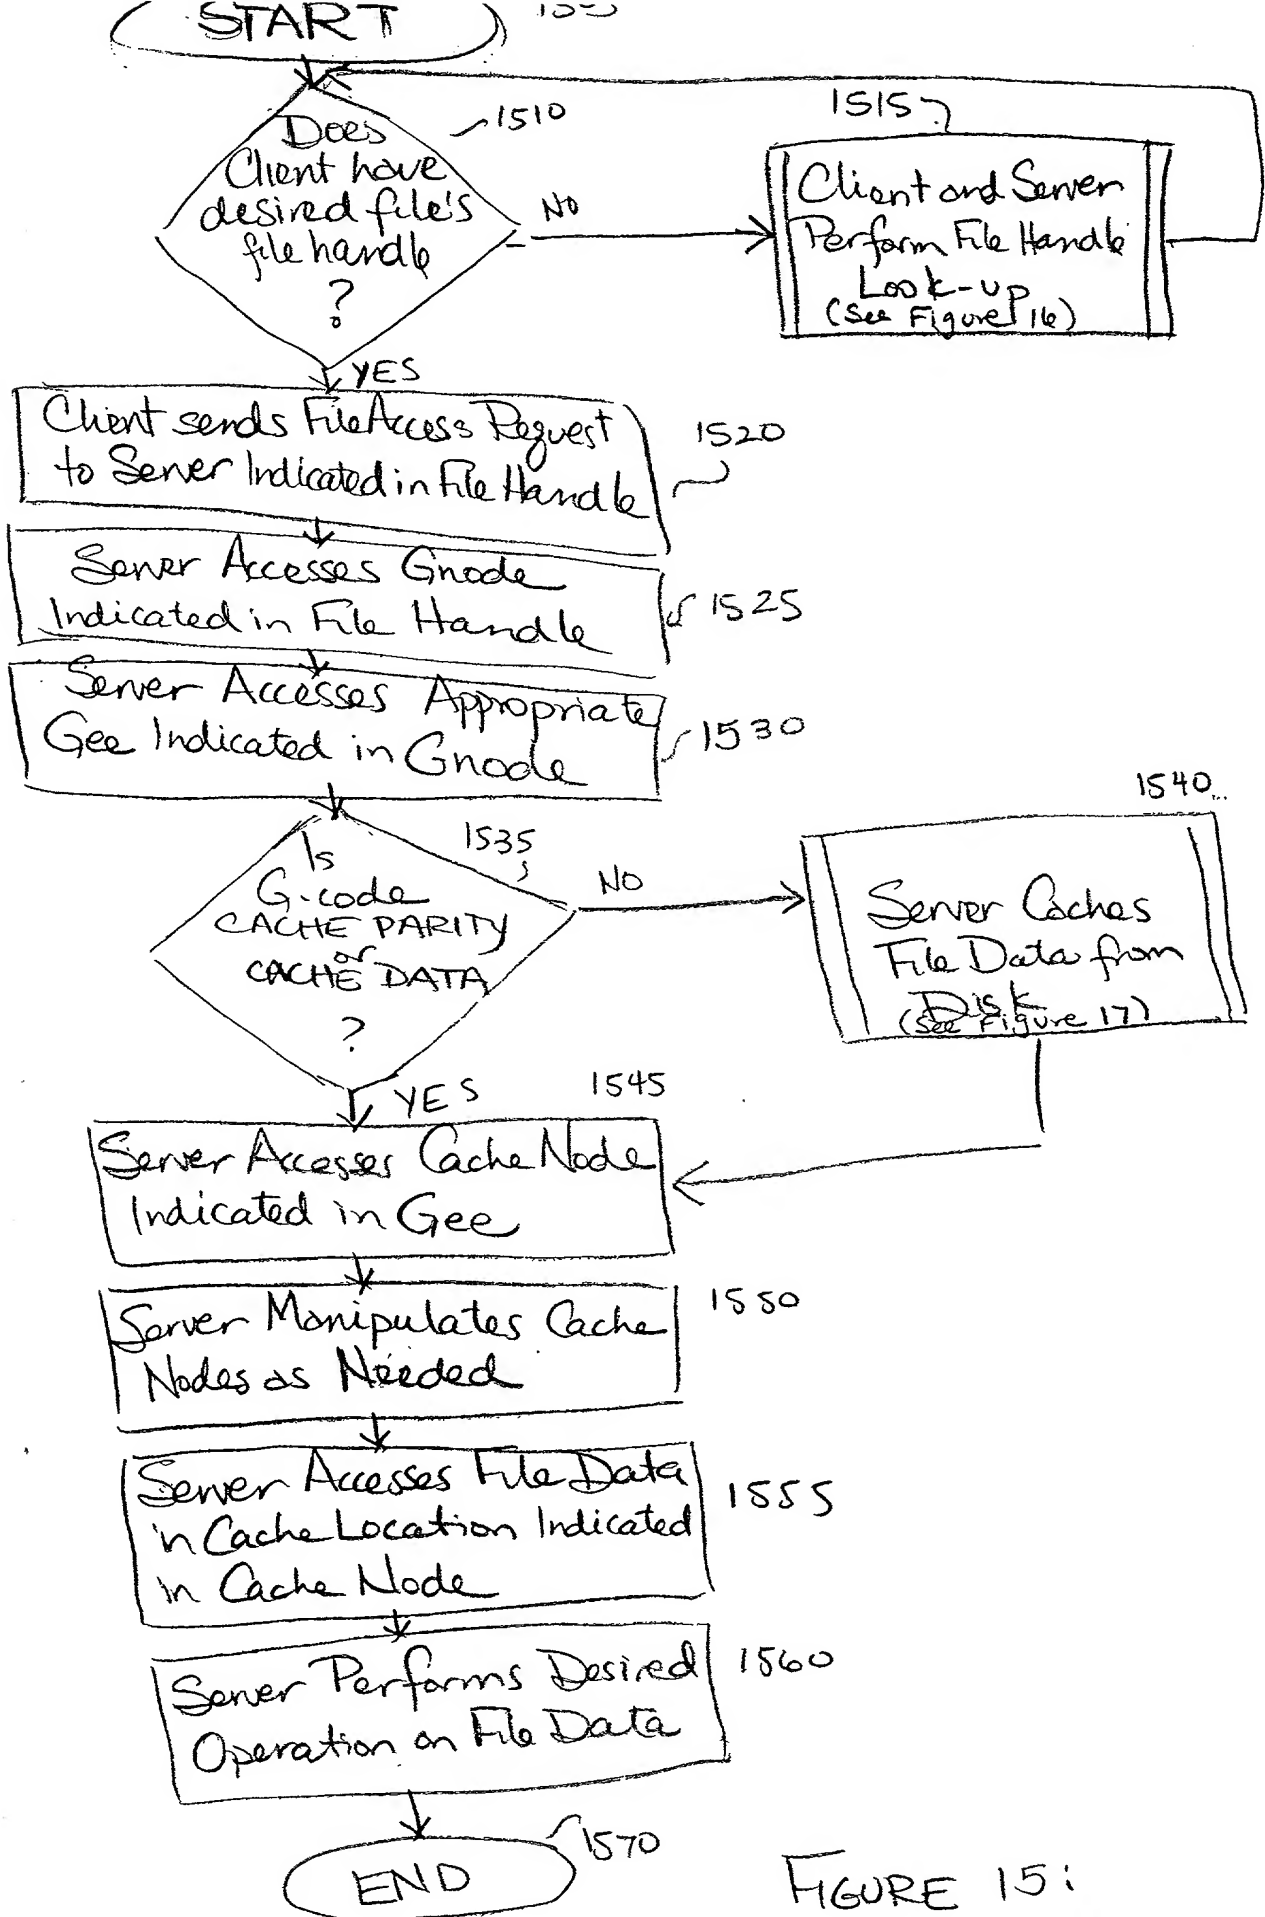 START
Does
Client have
desired file's
file handle
?
1510
NO
1515
Client and Server
Perform File Handle
Look-up
(See Figure 16)
YES
Client sends File Access Request
to Server Indicated in File Handle
1520
Server Accesses Gnode
Indicated in File Handle
1525
Server Accesses Appropriate
Gee Indicated in Gnode
1530
Is
G-code
CACHE PARITY
or
CACHE DATA
?
1535
NO
1540
Server Caches
File Data from
Disk
(See Figure 17)
YES
1545
Server Accesses Cache Node
Indicated in Gee
Server Manipulates Cache
Nodes as Needed
1550
Server Accesses File Data
in Cache Location Indicated
in Cache Node
1555
Server Performs Desired
Operation on File Data
1560
END
1570
FIGURE 15: